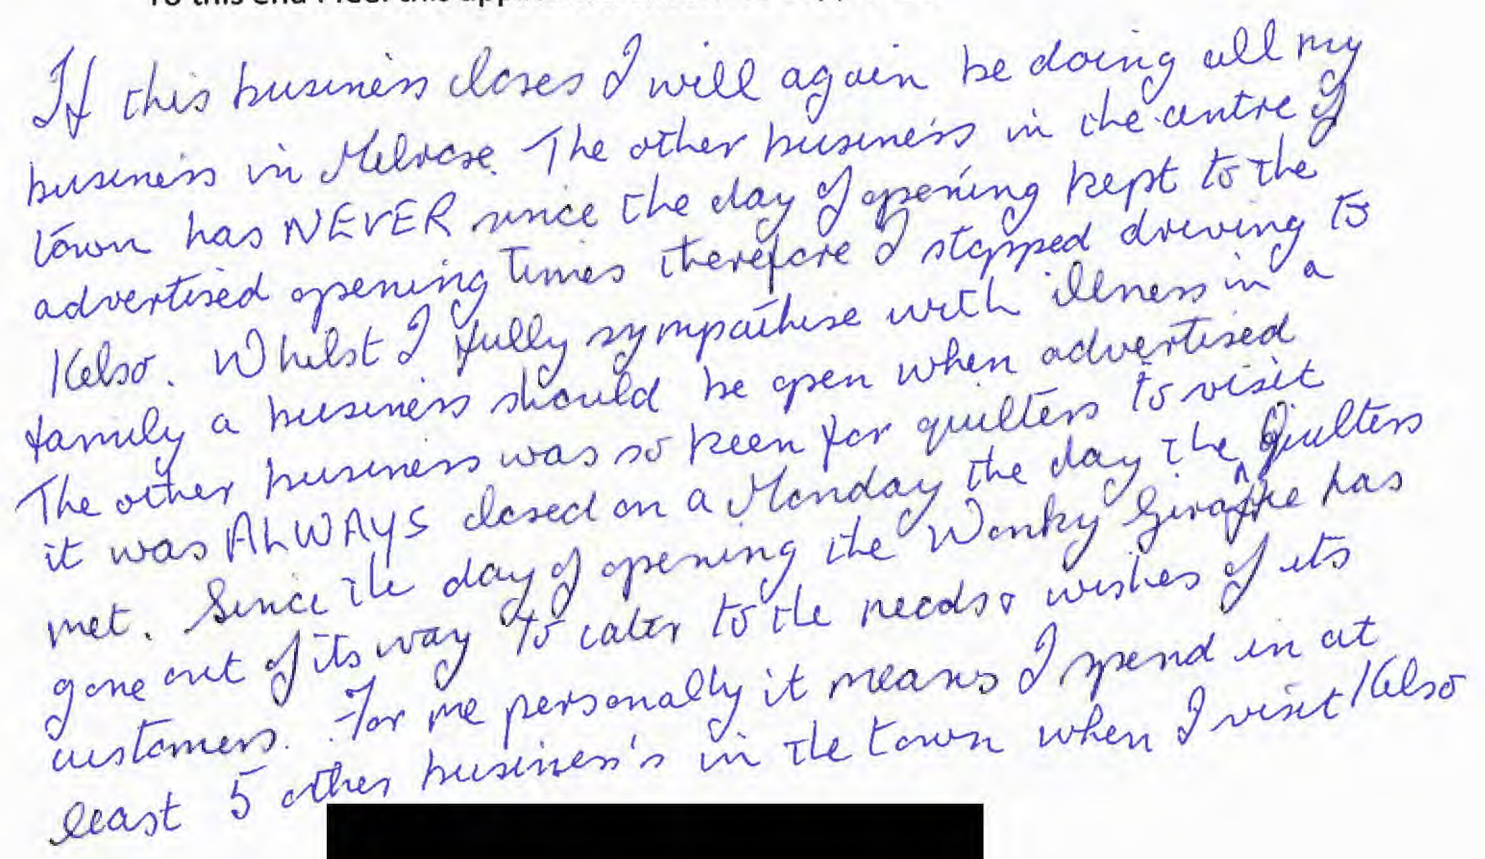 If this business closes I will again be doing all my
business in Melrose. The other business in the centre of
town has NEVER since the day of opening kept to the
advertised opening times therefore I stopped driving to
Kelso. Whilst I fully sympathise with illness in a
family a business should be open when advertised
The other business was so keen for quilters to visit
it was ALWAYS closed on a Monday the day the Quilters
met. Since the day of opening the Wonky Giraffe has
gone out of its way to cater to the needs & wishes of its
customers. For me personally it means I spend in at
least 5 other business's in the town when I visit Kelso